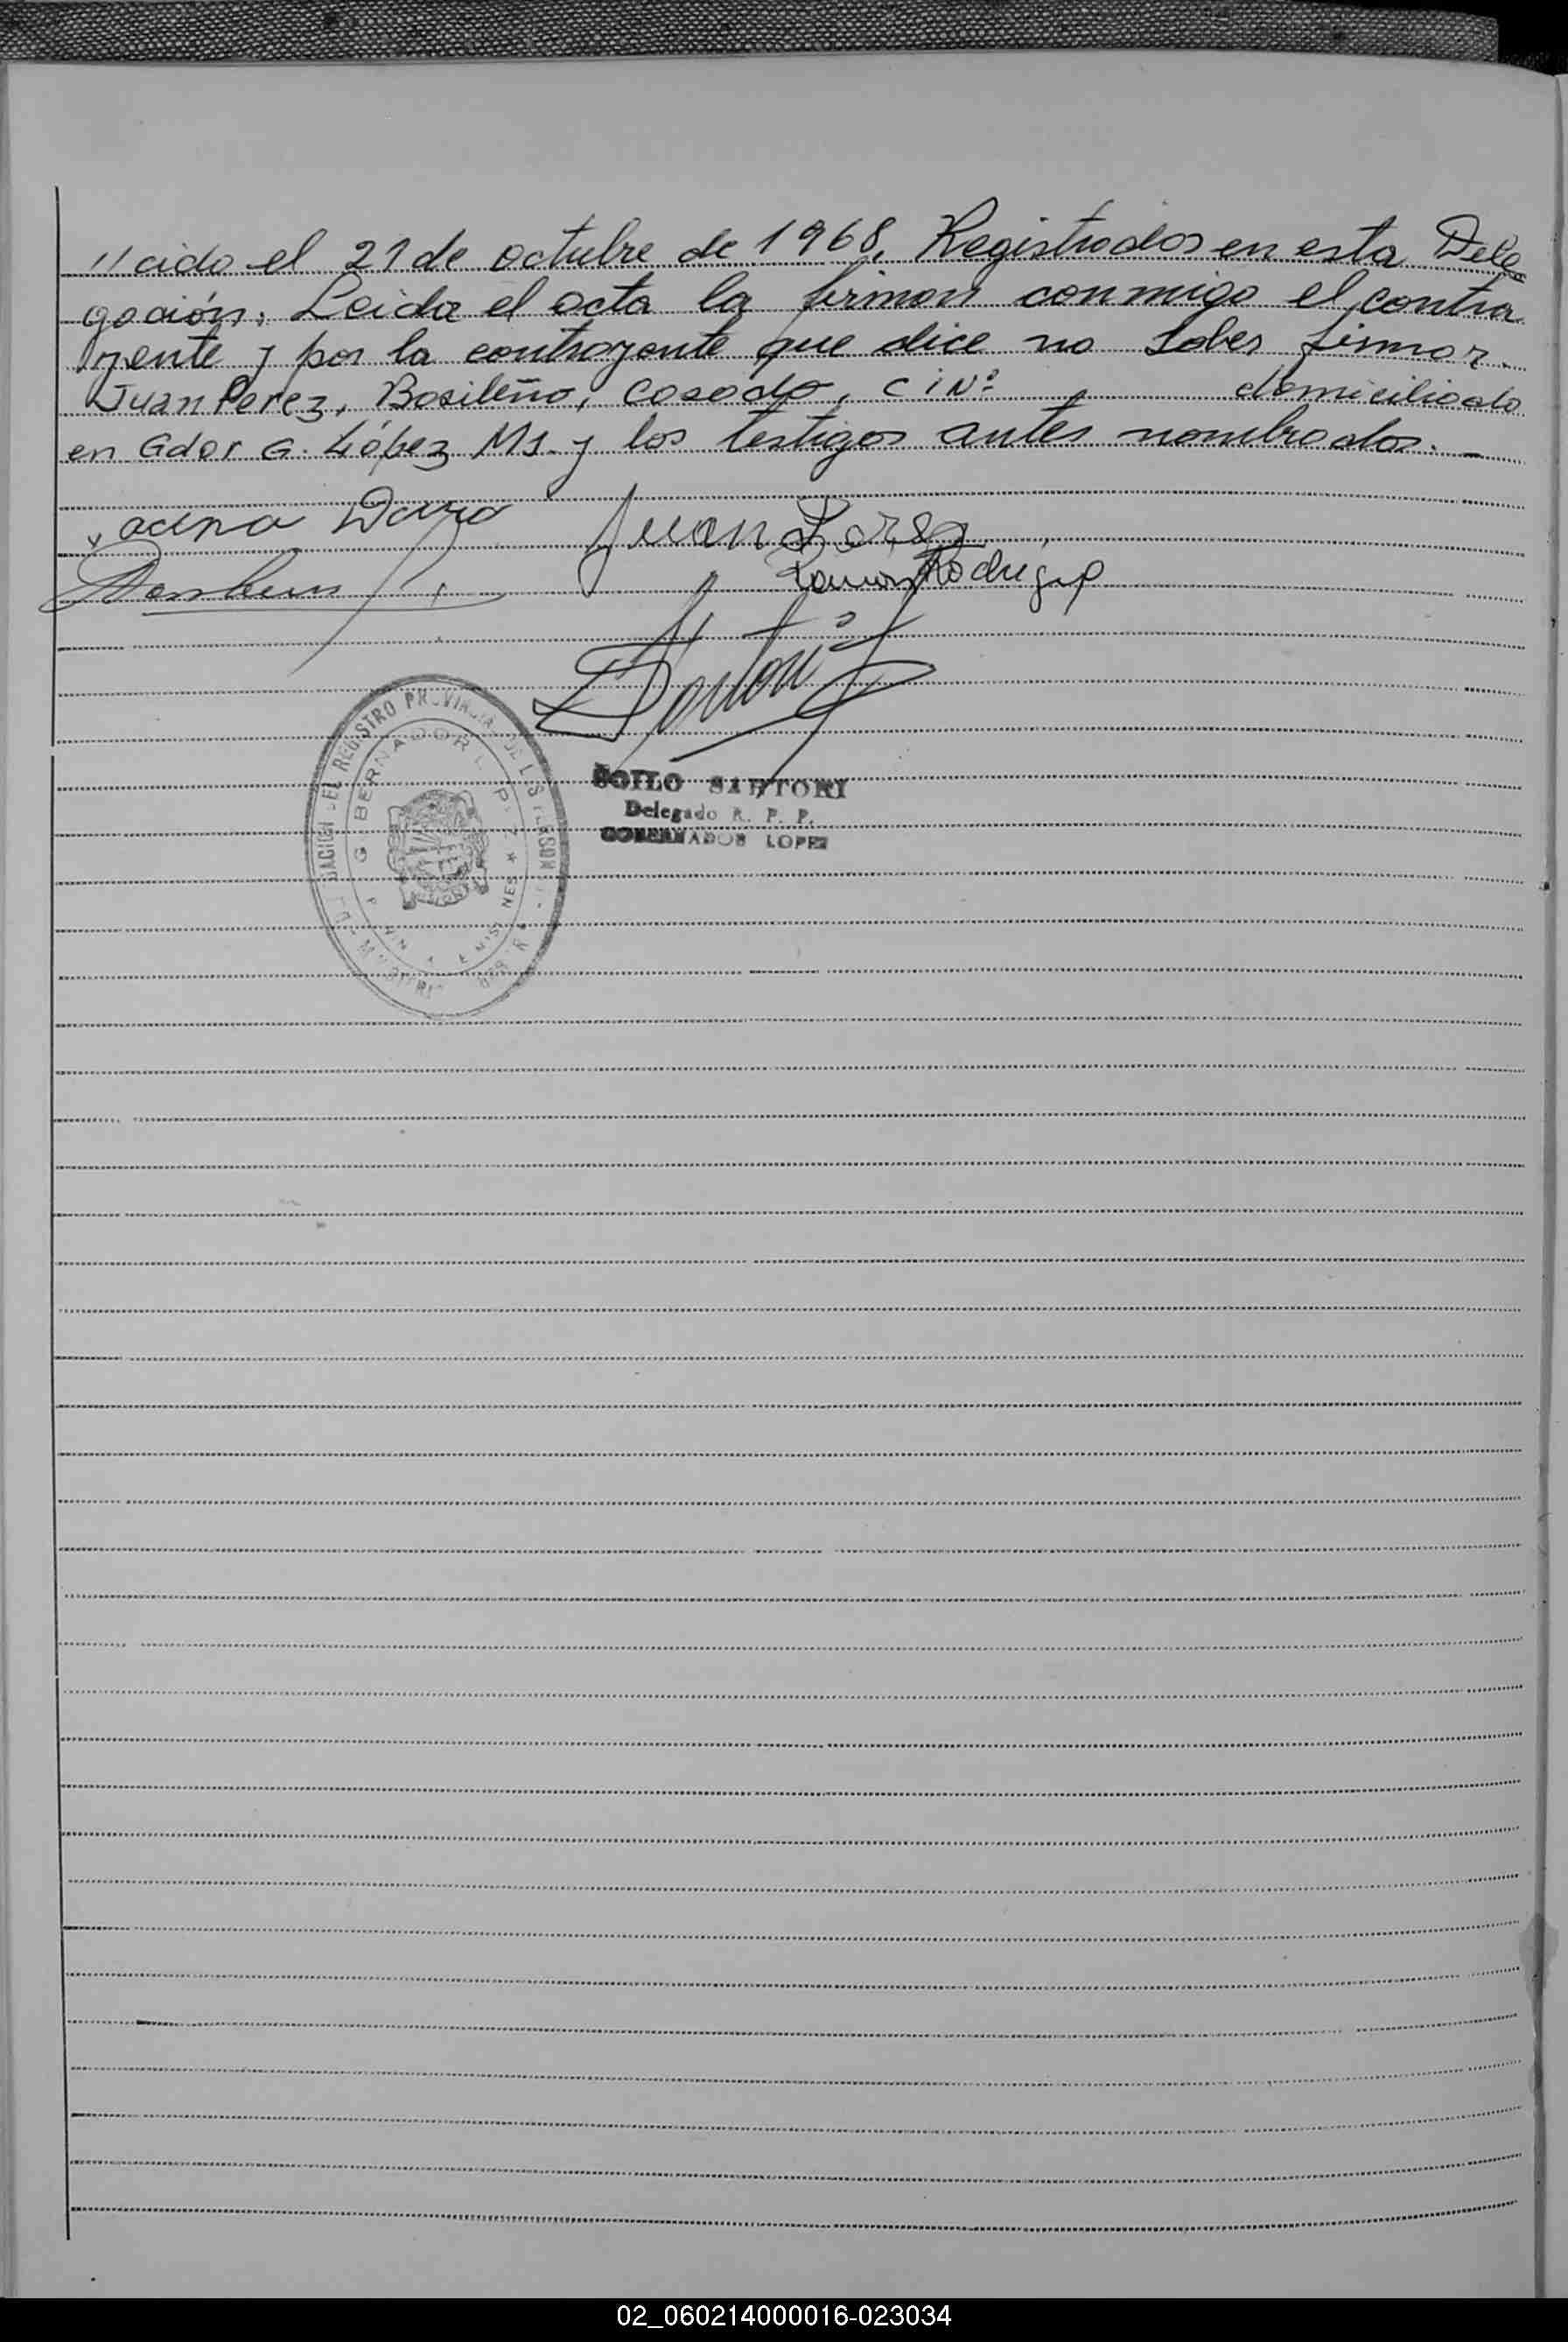 "cido el 21 de octubre de 1968. Registrados en esta Dele
gación. Leida el acta la firman conmigo el contra
yente y por la contrayente que dice no saber firmar.
Juan Perez, Brasileño, Casado, C i Nº domiciliado
en Gdor G. López Ms. y los testigos antes nombrados. -
Juan Perez
Ramon Rodriguez
Sartori
SOILO SARTORI
Delegado R. P. P.
GOBERNADOR LOPEZ
REGISTRO PROVINCIAL DE LAS PERSONAS
GOBERNADOR LOPEZ
MISIONES
02_060214000016-023034